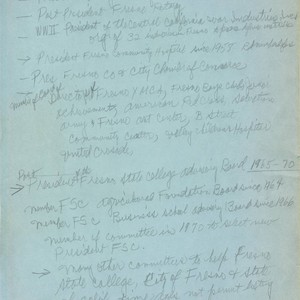 - Past-President Fresno Rotary
- WWII President of the Central California War Industries, Inc
org of 32
- President Fresno Community Hospital since 1957
- Pres. Fresno Co & City Chamber of Commerce
Director of Fresno YMCA, Fresno
American Red Cross, Salvation
Army & Fresno Art Center, B Street
Community Center, Valley Childrens Hospital
United Crusade.
Past
→ President Fresno State College Advisory Board 1965-70
member FSC Agricultural Foundation Board since 1964
member FSC Business School Advisory Board since 1966
member of committee in 1970 to select new
President FSC.
→ Many other committees to help Fresno
State College, City of Fresno & State
of Calif. does not permit listing